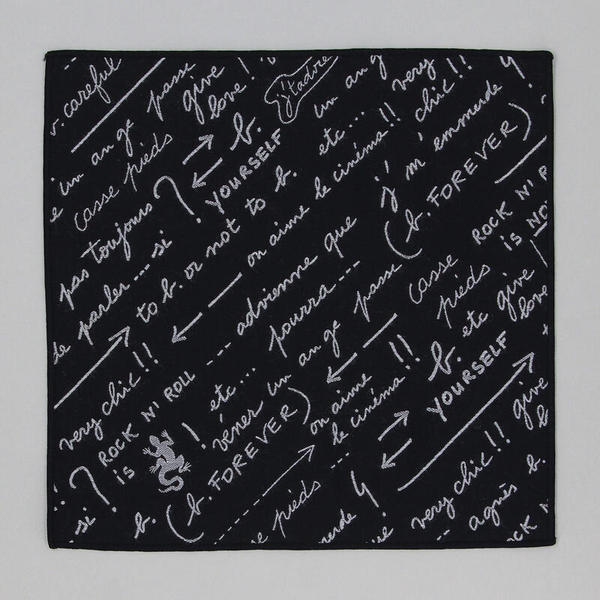 b. careful
un ange passe
give love!
j't'adore
un ang
very chic!!
casse pieds
b. YOURSELF
etc...
j' m emmerde
pas toujours ?
to b. or not to b.
on aime le cinéma!!
(b. FOREVER)
de parler ---- si
advienne que pourra ---
ROCK N' R
is NO
very chic!!
etc... un ange passe
casse pieds
b. etc give love
ROCK N' ROLL is
!
vénez
on aime le cinéma!!
b. YOURSELF
-si ?
b. (b. FOREVER)
give
b.
se pieds
erde
very chic!!
agnès b.
ROCK N'
is